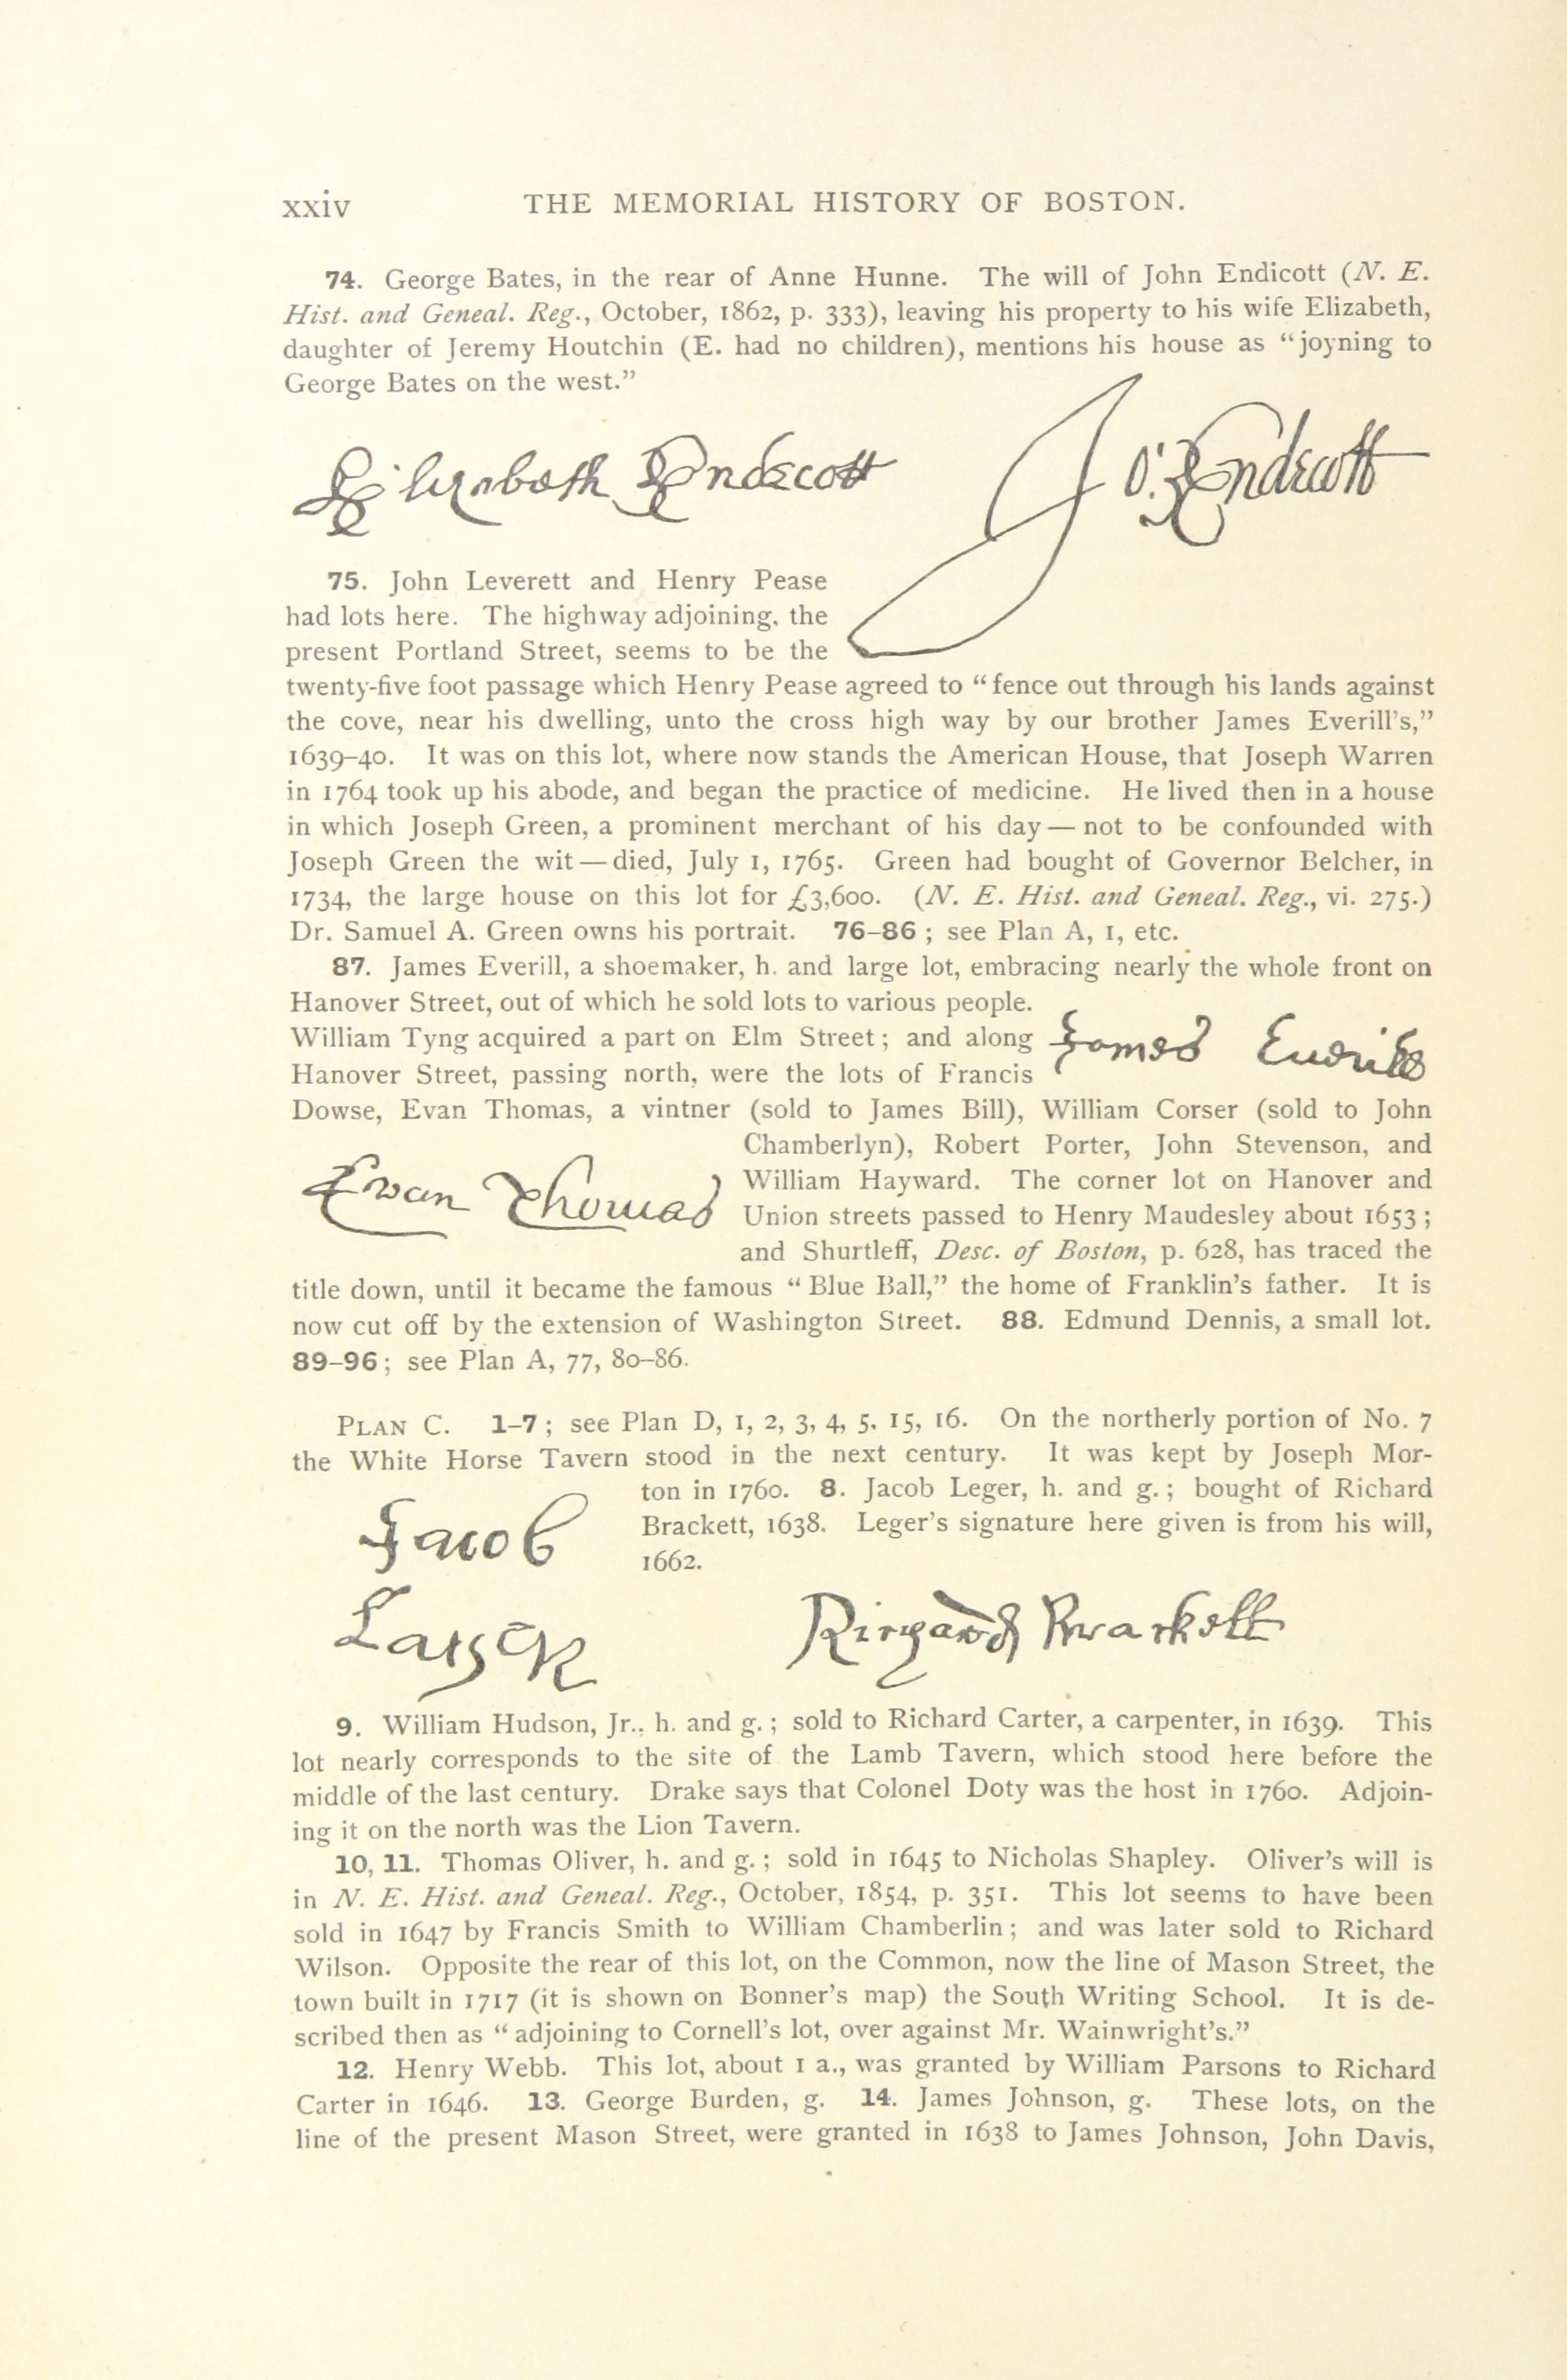 xxiv THE MEMORIAL HISTORY OF BOSTON.
74. George Bates, in the rear of Anne Hunne. The will of John Endicott (N. E.
Hist. and Geneal. Reg., October, 1862, p. 333), leaving his property to his wife Elizabeth,
daughter of Jeremy Houtchin (E. had no children), mentions his house as “joyning to
George Bates on the west.”
Elizabeth Endecott Jo: Endecott
75. John Leverett and Henry Pease
had lots here. The highway adjoining, the
present Portland Street, seems to be the
twenty-five foot passage which Henry Pease agreed to “fence out through his lands against
the cove, near his dwelling, unto the cross high way by our brother James Everill’s,”
1639–40. It was on this lot, where now stands the American House, that Joseph Warren
in 1764 took up his abode, and began the practice of medicine. He lived then in a house
in which Joseph Green, a prominent merchant of his day — not to be confounded with
Joseph Green the wit — died, July 1, 1765. Green had bought of Governor Belcher, in
1734, the large house on this lot for £3,600. (N. E. Hist. and Geneal. Reg., vi. 275.)
Dr. Samuel A. Green owns his portrait. 76–86; see Plan A, 1, etc.
87. James Everill, a shoemaker, h. and large lot, embracing nearly the whole front on
Hanover Street, out of which he sold lots to various people.
William Tyng acquired a part on Elm Street; and along
James Everill
Hanover Street, passing north, were the lots of Francis
Dowse, Evan Thomas, a vintner (sold to James Bill), William Corser (sold to John
Chamberlyn), Robert Porter, John Stevenson, and
Evan Thomas
William Hayward. The corner lot on Hanover and
Union streets passed to Henry Maudesley about 1653;
and Shurtleff, Desc. of Boston, p. 628, has traced the
title down, until it became the famous “Blue Ball,” the home of Franklin’s father. It is
now cut off by the extension of Washington Street. 88. Edmund Dennis, a small lot.
89–96; see Plan A, 77, 80–86.
PLAN C. 1–7; see Plan D, 1, 2, 3, 4, 5, 15, 16. On the northerly portion of No. 7
the White Horse Tavern stood in the next century. It was kept by Joseph Mor-
ton in 1760. 8. Jacob Leger, h. and g.; bought of Richard
Brackett, 1638. Leger’s signature here given is from his will,
1662.
Jacob
Richard Brackett
9. William Hudson, Jr., h. and g.; sold to Richard Carter, a carpenter, in 1639. This
lot nearly corresponds to the site of the Lamb Tavern, which stood here before the
middle of the last century. Drake says that Colonel Doty was the host in 1760. Adjoin-
ing it on the north was the Lion Tavern.
10, 11. Thomas Oliver, h. and g.; sold in 1645 to Nicholas Shapley. Oliver’s will is
in N. E. Hist. and Geneal. Reg., October, 1854, p. 351. This lot seems to have been
sold in 1647 by Francis Smith to William Chamberlin; and was later sold to Richard
Wilson. Opposite the rear of this lot, on the Common, now the line of Mason Street, the
town built in 1717 (it is shown on Bonner’s map) the South Writing School. It is de-
scribed then as “adjoining to Cornell’s lot, over against Mr. Wainwright’s.”
12. Henry Webb. This lot, about 1 a., was granted by William Parsons to Richard
Carter in 1646. 13. George Burden, g. 14. James Johnson, g. These lots, on the
line of the present Mason Street, were granted in 1638 to James Johnson, John Davis,